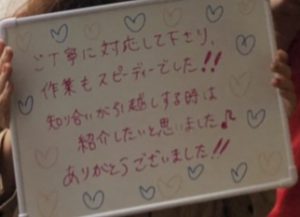 ご丁寧に対応して下さり、
作業もスピーディーでした!!
知り合いが引越しする時は
紹介したいと思いました♪
ありがとうございました!!